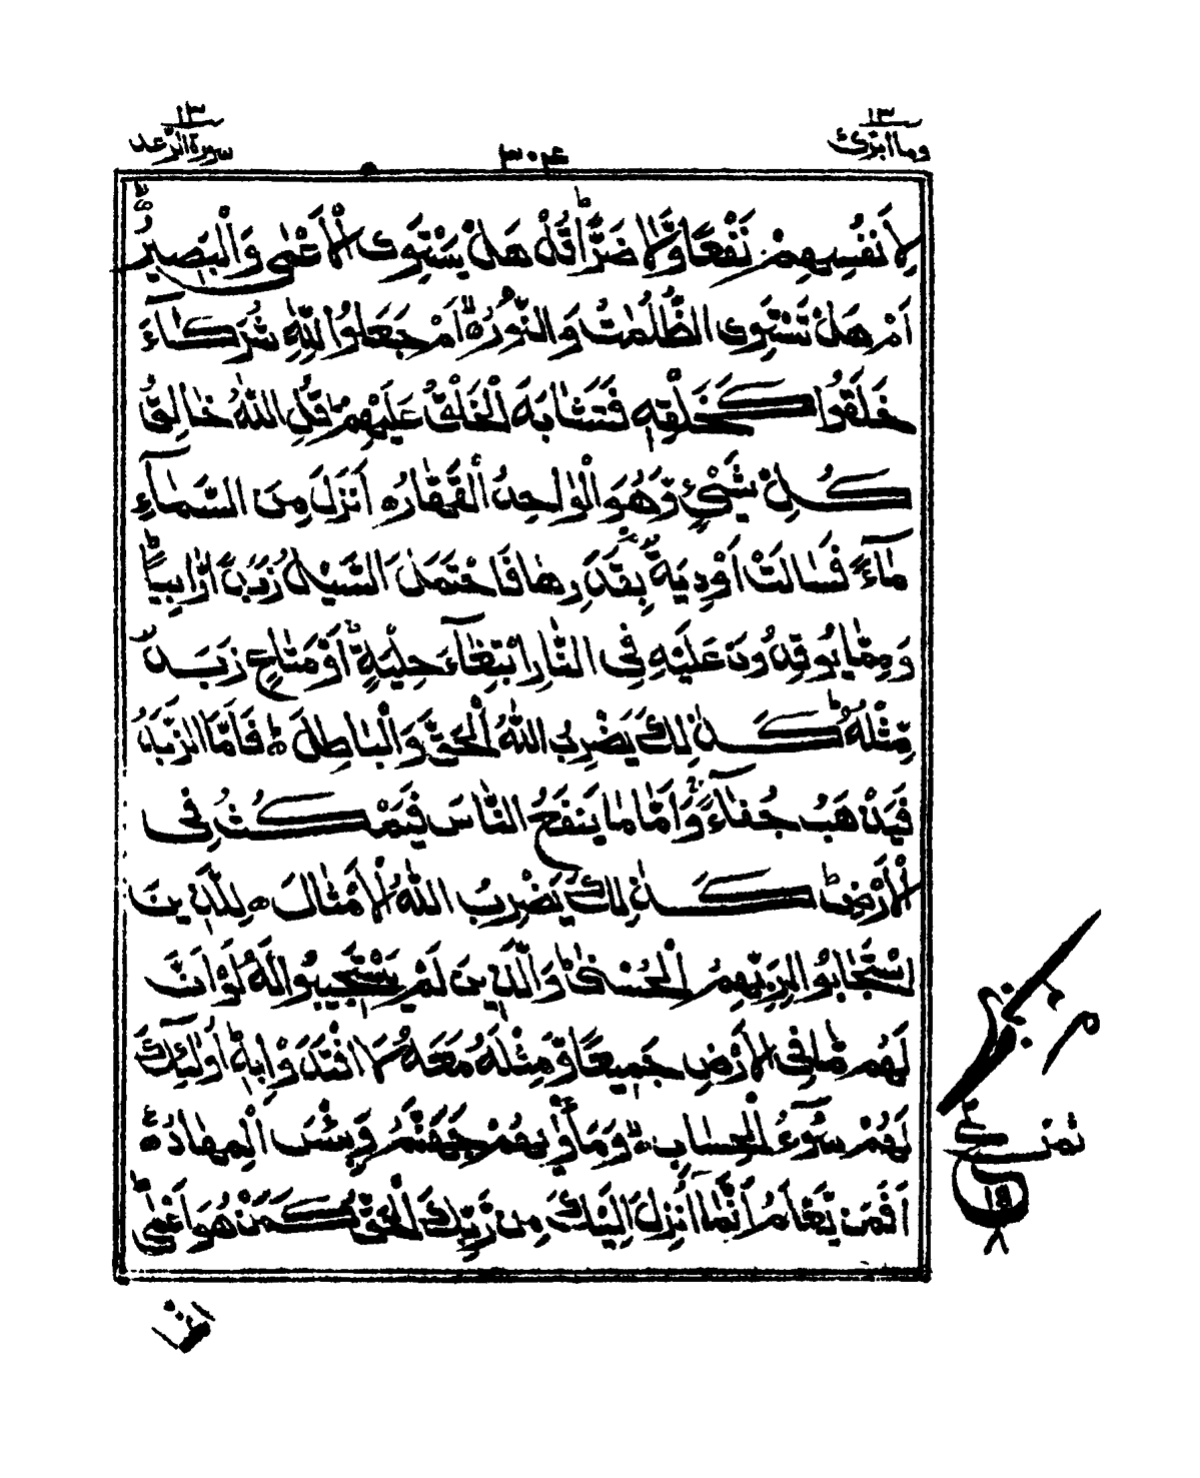 ١٣
١٣
وما ابرئ
٣٠٤
سورة الرعد
لِاَنْفُسِهِمْ نَفْعًا وَّلَا ضَرًّا ؕ قُلْ هَلْ يَسْتَوِى الْاَعْمٰى وَالْبَصِيْرُ ۙ
اَمْ هَلْ تَسْتَوِى الظُّلُمٰتُ وَالنُّوْرُ ۚ اَمْ جَعَلُوْا لِلّٰهِ شُرَكَآءَ
خَلَقُوْا كَخَلْقِهٖ فَتَشَابَهَ الْخَلْقُ عَلَيْهِمْ ؕ قُلِ اللّٰهُ خَالِقُ
كُلِّ شَىْءٍ وَّهُوَ الْوَاحِدُ الْقَهَّارُ ۝ اَنْزَلَ مِنَ السَّمَآءِ
مَآءً فَسَالَتْ اَوْدِيَةٌۢ بِقَدَرِهَا فَاحْتَمَلَ السَّيْلُ زَبَدًا رَّابِيًا ؕ
وَمِمَّا يُوْقِدُوْنَ عَلَيْهِ فِى النَّارِ ابْتِغَآءَ حِلْيَةٍ اَوْ مَتَاعٍ زَبَدٌ
مِّثْلُهٗ ؕ كَذٰلِكَ يَضْرِبُ اللّٰهُ الْحَقَّ وَالْبَاطِلَ ؕ فَاَمَّا الزَّبَدُ
فَيَذْهَبُ جُفَآءً ۚ وَاَمَّا مَا يَنْفَعُ النَّاسَ فَيَمْكُثُ فِى
الْاَرْضِ ؕ كَذٰلِكَ يَضْرِبُ اللّٰهُ الْاَمْثَالَ ۝ لِلَّذِيْنَ
اسْتَجَابُوْا لِرَبِّهِمُ الْحُسْنٰى ؕ وَالَّذِيْنَ لَمْ يَسْتَجِيْبُوْا لَهٗ لَوْ اَنَّ
لَهُمْ مَّا فِى الْاَرْضِ جَمِيْعًا وَّمِثْلَهٗ مَعَهٗ لَافْتَدَوْا بِهٖ ؕ اُولٰٓئِكَ
لَهُمْ سُوْٓءُ الْحِسَابِ ۙ وَمَاْوٰىهُمْ جَهَنَّمُ وَبِئْسَ الْمِهَادُ ۝
اَفَمَنْ يَّعْلَمُ اَنَّمَآ اُنْزِلَ اِلَيْكَ مِنْ رَّبِّكَ الْحَقُّ كَمَنْ هُوَ اَعْمٰى ؕ
ثمن